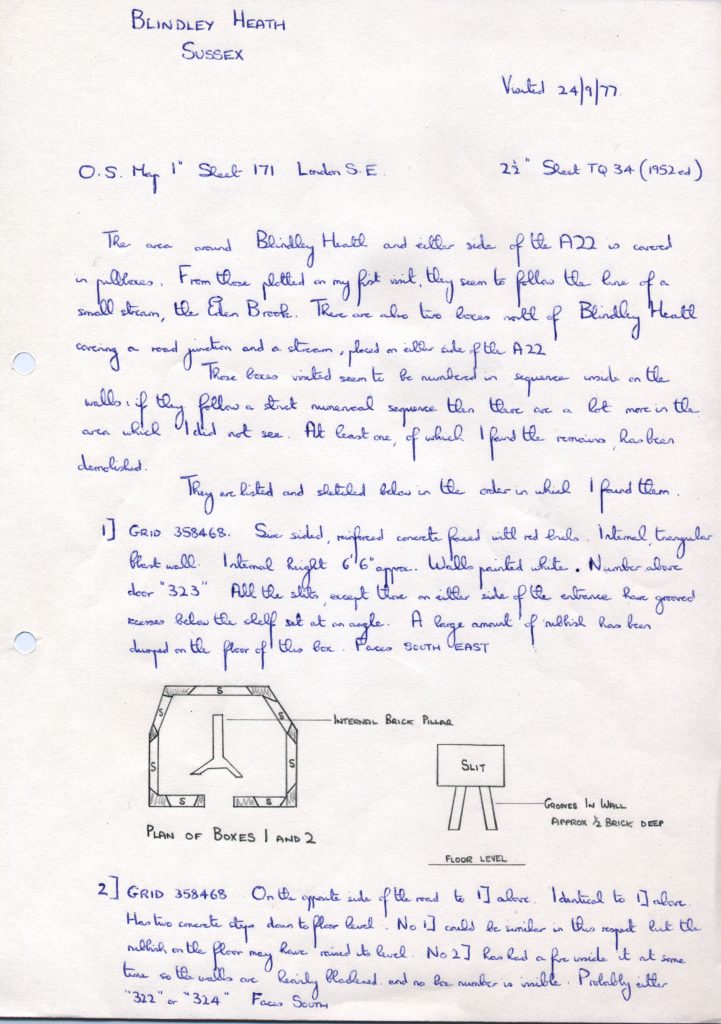 BLINDLEY HEATH
SUSSEX
Visited 24/9/77.
O.S. Map 1" Sheet 171 London S.E.
2½" Sheet TQ 34 (1952 ed)
The area around Blindley Heath and either side of the A22 is covered
in pillboxes. From those plotted on my first visit, they seem to follow the line of a
small stream, the Eden Brook. There are also two boxes north of Blindley Heath
covering a road junction and a stream, placed on either side of the A22
Those boxes visited seem to be numbered in sequence inside on the
walls: if they follow a strict numerical sequence then there are a lot more in the
area which I did not see. At least one, of which I found the remains, has been
demolished.
They are listed and sketched below in the order in which I found them.
1] GRID 358468. Six sided, reinforced concrete faced with red bricks. Internal, triangular
blast wall. Internal height 6'6" approx. Walls painted white. Number above
door "323" All the slits, except those on either side of the entrance have grooved
recesses below the shelf set at an angle. A large amount of rubbish has been
dumped on the floor of this box. Faces SOUTH EAST
S
S
S
S
S
S
S
INTERNAL BRICK PILLAR
PLAN OF BOXES 1 AND 2
SLIT
GROOVES IN WALL
APPROX ½ BRICK DEEP
FLOOR LEVEL
2] GRID 358468 On the opposite side of the road to 1] above. Identical to 1] above.
Has two concrete steps down to floor level. No 1] could be similar in this respect but the
rubbish on the floor may have raised its level. No 2] has had a fire inside it at some
time so the walls are heavily blackened and no box number is visible. Probably either
"322" or "324" Faces SOUTH